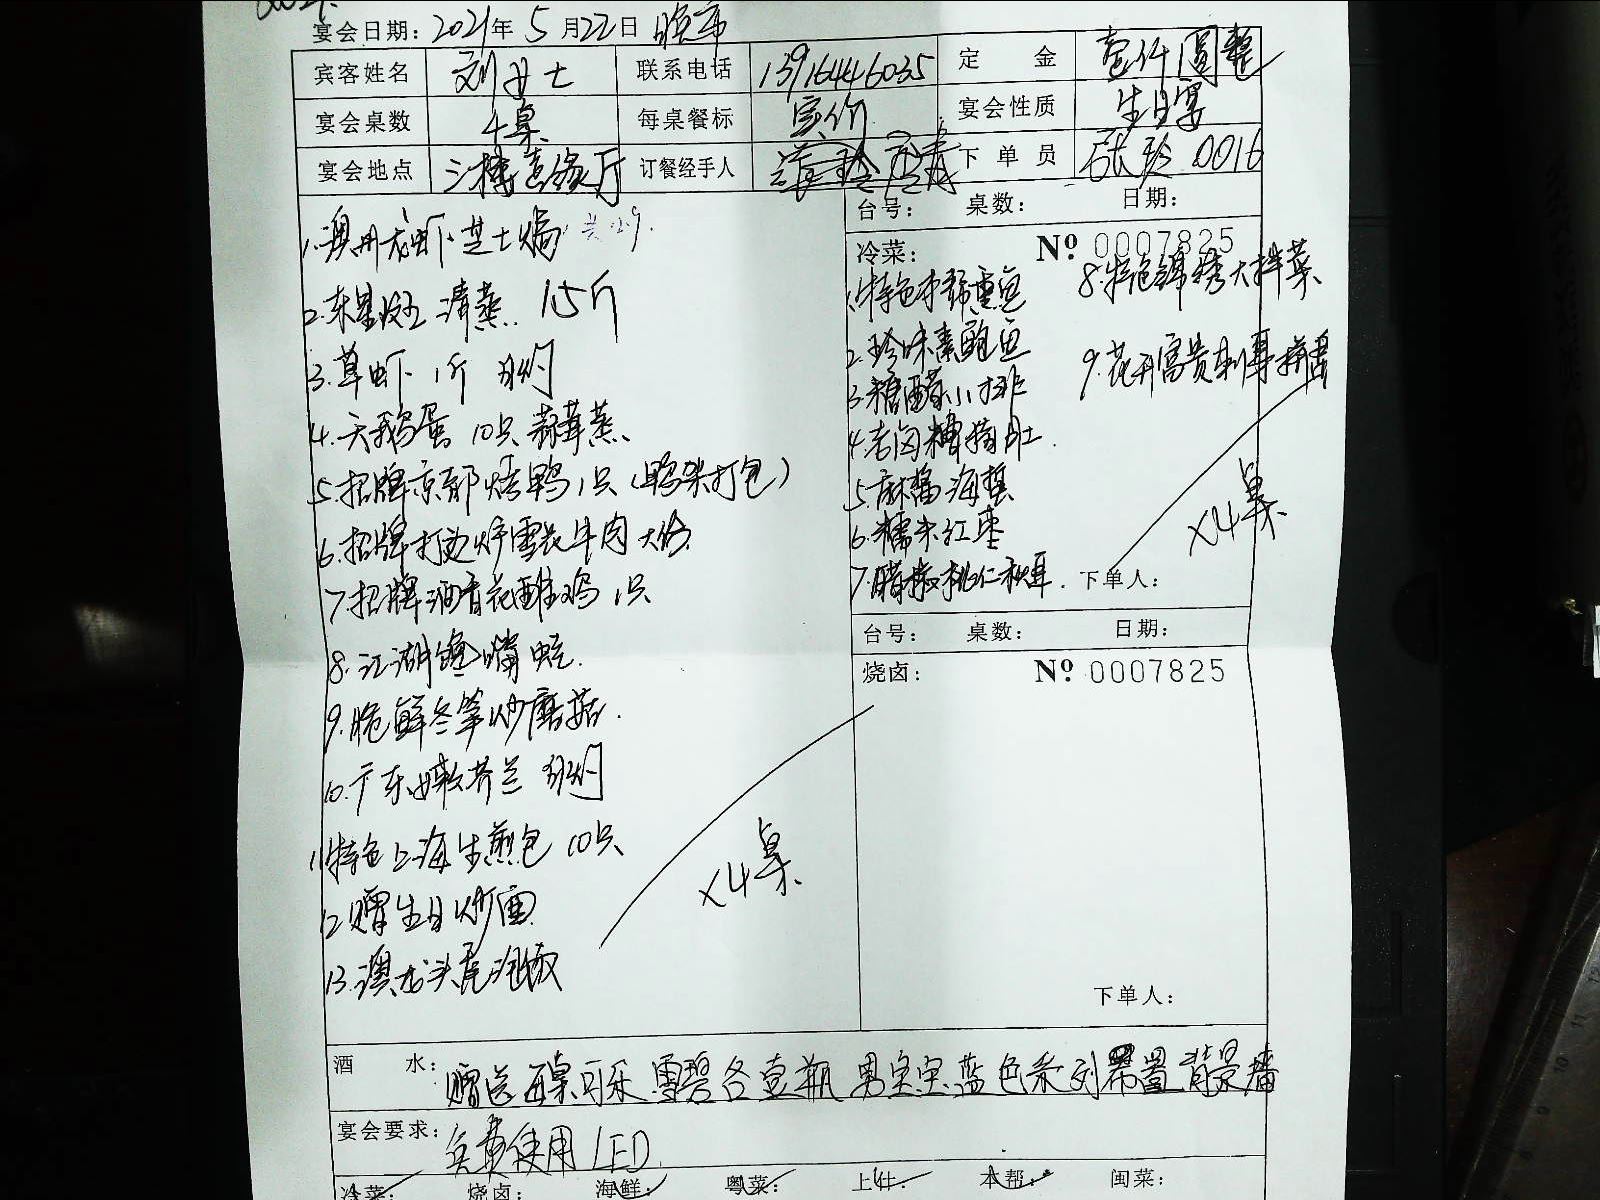 宴会日期：2021年 5月22日 晚市
宾客姓名 刘女士 联系电话 13916446035 定金 壹仟圆整
宴会桌数 4桌 每桌餐标 实价 宴会性质 生日宴
宴会地点 三楼喜缘厅 订餐经手人 下单员 张玲 0016
台号： 桌数： 日期：
1.澳州龙虾 芝士焗
2.东星斑 清蒸 15斤
3.草虾 1斤 白灼
4.天鹅蛋 10只 蒜茸蒸
5.招牌京都烤鸭 1只（鸭架打包）
6.招牌打边炉雪花牛肉 大份
7.招牌酒香花雕鸡 1只
8.江湖
9.脆鲜冬笋炒蘑菇
10.广东嫩芥兰 白灼
11.特色上海生煎包 10只
12.赠生日炒面
13.澳龙头尾泡饭
×4桌
冷菜： Nº 0007825
1.特色熏鱼
2.珍味素鲍鱼
3.糖醋小排
4.老卤糟猪肚
5.麻酱海蜇
6.糯米红枣
7.腊椒桃仁秋耳
8.特色锦绣大拌菜
9.花开富贵刺身拼盘
×4桌
下单人：
台号： 桌数： 日期：
烧卤： Nº 0007825
下单人：
酒水： 赠送每桌可乐 雪碧各壹瓶 男宝宝蓝色系列布置背景墙
宴会要求： 免费使用LED
冷菜： 烧卤： 海鲜： 粤菜： 上什： 本帮： 闽菜：